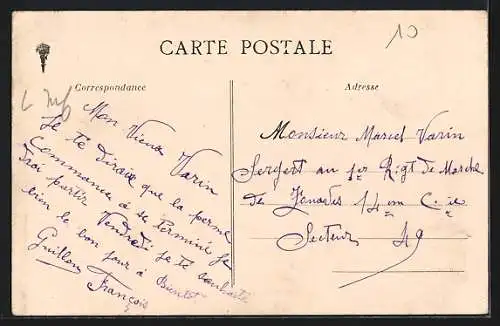 CARTE POSTALE
10
Correspondance
Mon Vieux Varin
Je te dirave que la perme
Commence à se terminé je
Drai partir Vendredi je te souhaite
bien le bon jour à Bientot
Guillon François
Adresse
Monsieur Marcel Varin
Sergent au 1er Rigt de Marche
de Zouaves 14em Cie
Secteur 49